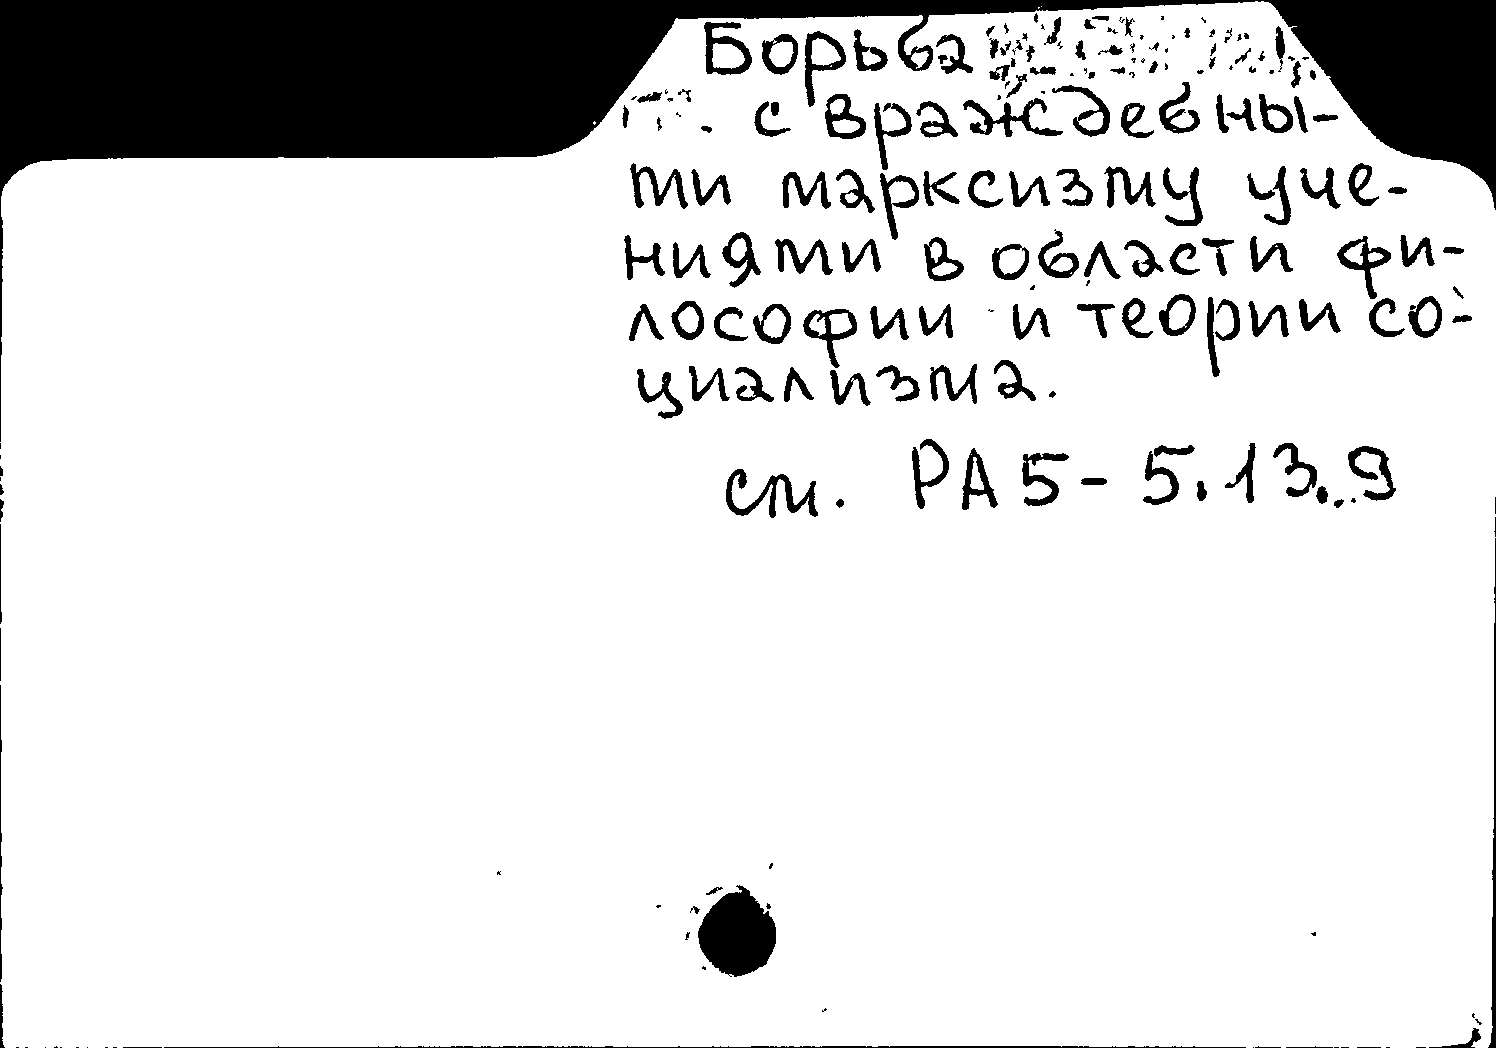 Борьба
с враждебны-
ми марксизму уче-
ниями в области фи-
лософии и теории со-
циализма.
см. РА5-5.13.9